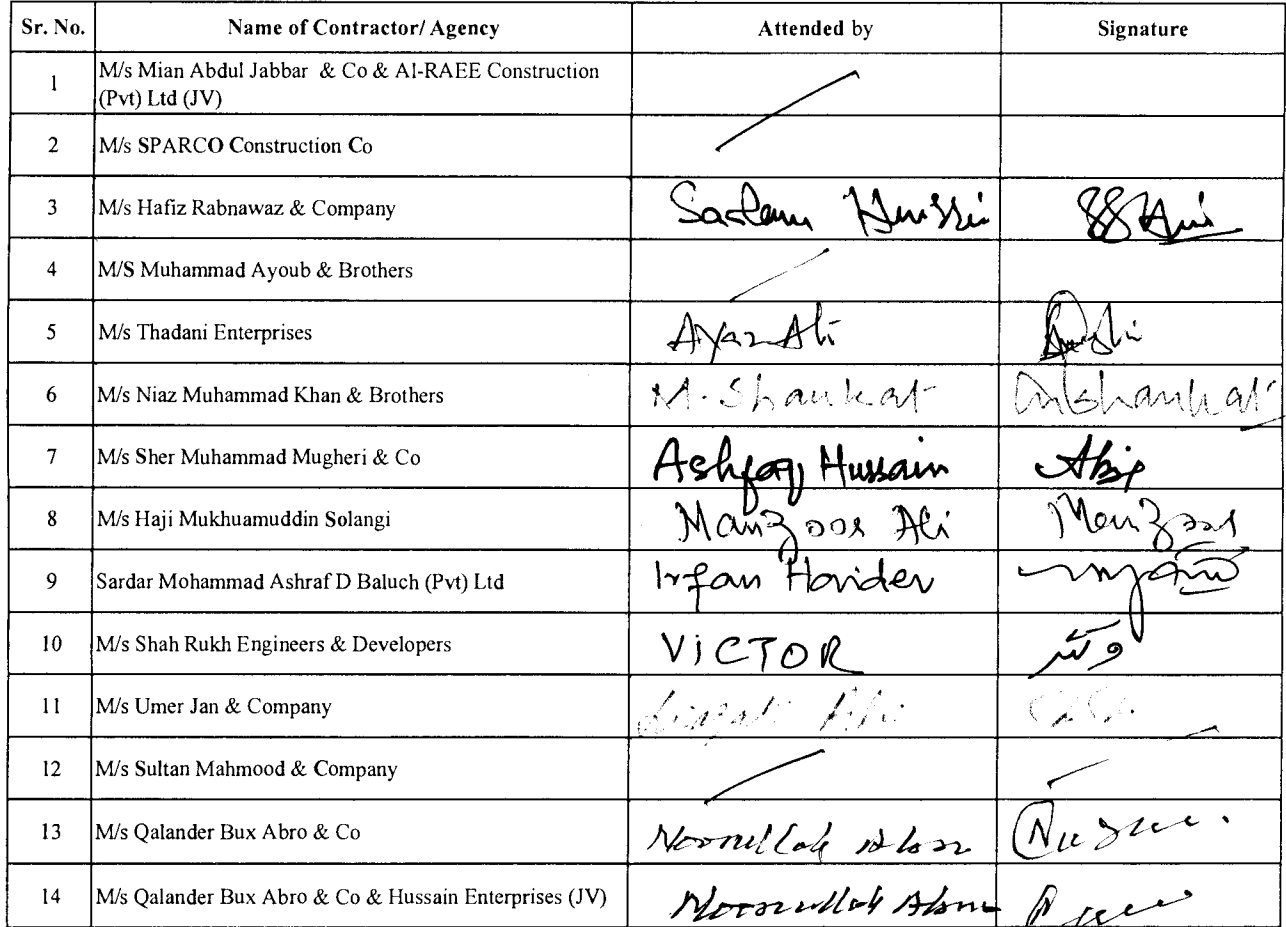 Sr. No. Name of Contractor/ Agency Attended by Signature
1 M/s Mian Abdul Jabbar & Co & Al-RAEE Construction
(Pvt) Ltd (JV)
2 M/s SPARCO Construction Co
3 M/s Hafiz Rabnawaz & Company
4 M/S Muhammad Ayoub & Brothers
5 M/s Thadani Enterprises Ayaz Ali
6 M/s Niaz Muhammad Khan & Brothers M. Shaukat Mshaukat
7 M/s Sher Muhammad Mugheri & Co Ashfaq Hussain
8 M/s Haji Mukhuamuddin Solangi Manzoor Ali Manzoor
9 Sardar Mohammad Ashraf D Baluch (Pvt) Ltd Irfan Haider
10 M/s Shah Rukh Engineers & Developers ViCTOR وکٹر
11 M/s Umer Jan & Company
12 M/s Sultan Mahmood & Company
13 M/s Qalander Bux Abro & Co Noorullah Abro
14 M/s Qalander Bux Abro & Co & Hussain Enterprises (JV) Noorullah Abro